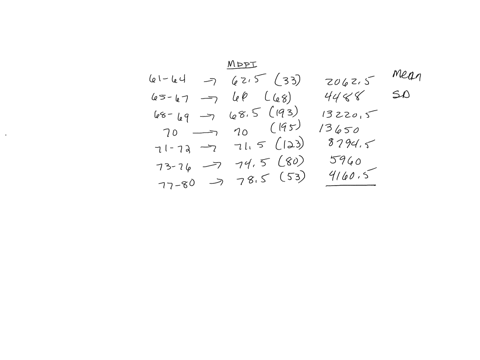 MDPT
61-64 → 62.5 (33) 2062.5 Mean
65-67 → 66 (68) 4488 SD
68-69 → 68.5 (193) 13220.5
70 → 70 (195) 13650
71-72 → 71.5 (123) 8794.5
73-76 → 74.5 (80) 5960
77-80 → 78.5 (53) 4160.5